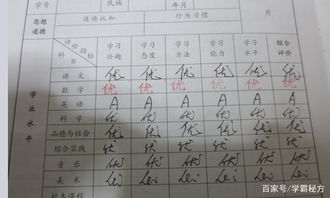 学号 民族 年月 月
思想道德 道德认知 行为习惯
学业水平
评价指标 科目 学习兴趣 学习态度 学习方法 学习能力 学习水平 综合评价
语文 优 优 优 优 优 优
数学 优 优 优 优 优 优
英语 A A A A A A
科学 优 优 优 优 优 优
品德与社会 优 优 优 优 优 优
综合实践 优 优 优 优 优 优
音乐 优 优 优 优 优 优
美术
校本课程
百家号/学霸秘方